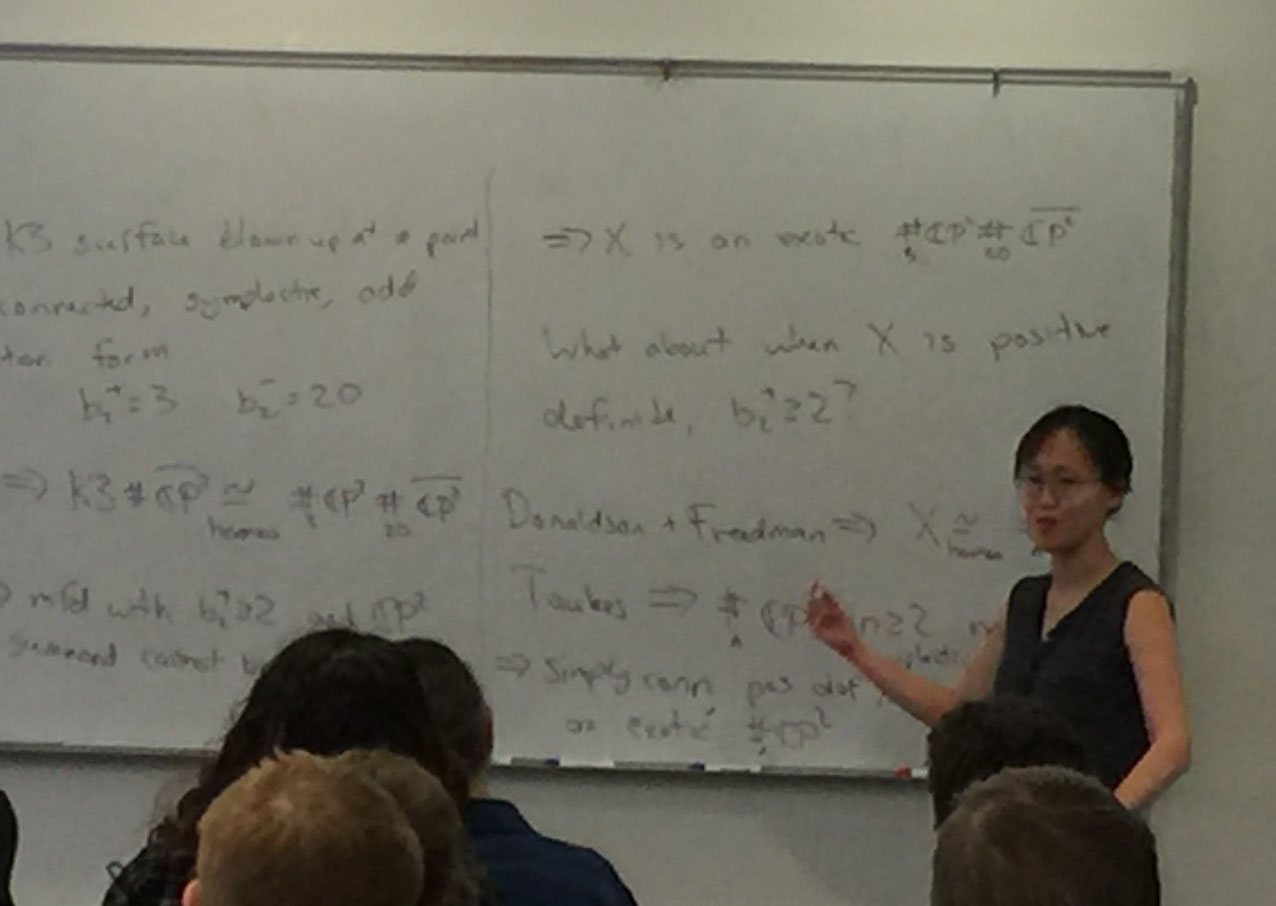 K3 surface blown up at a point
connected, symplectic, odd
form
b₂⁺ = 3 b₂⁻ = 20
⇒ K3 # \overline{ℂP²} ≅ homeo # ℂP² #₂₀ \overline{ℂP²}
mfd with b₂⁺ ≥ 2 and ℂP²
summand cannot
⇒ X is an exotic #₃ ℂP² #₂₀ \overline{ℂP²}
What about when X is positive
definite, b₂⁺ ≥ 2?
Donaldson + Freedman ⇒ X ≅ homeo
Taubes ⇒ #ₙ ℂP² n ≥ 2
⇒ simply conn pos def
an exotic # ℂP²